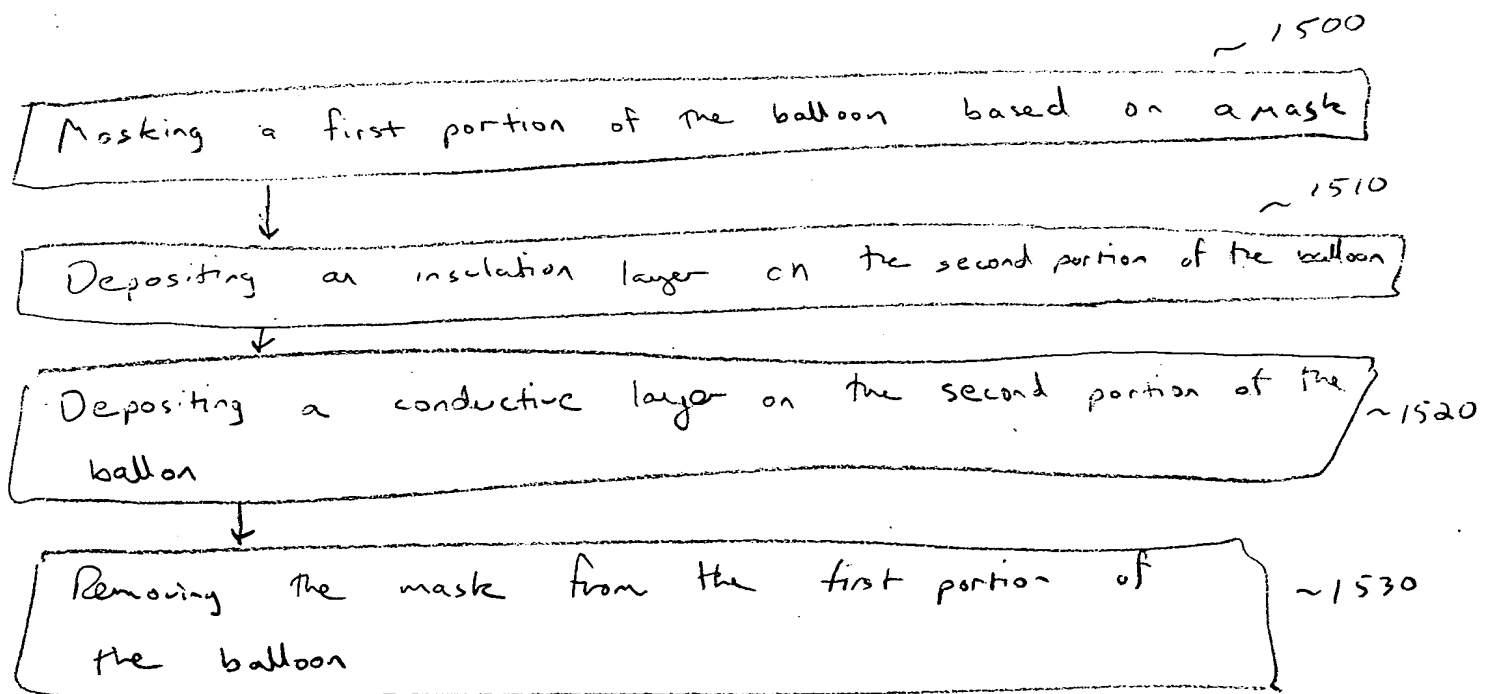 ~ 1500
Masking a first portion of the balloon based on a mask
~ 1510
Depositing an insulation layer on the second portion of the balloon
Depositing a conductive layer on the second portion of the
~1520
ballon
Removing the mask from the first portion of
~1530
the balloon